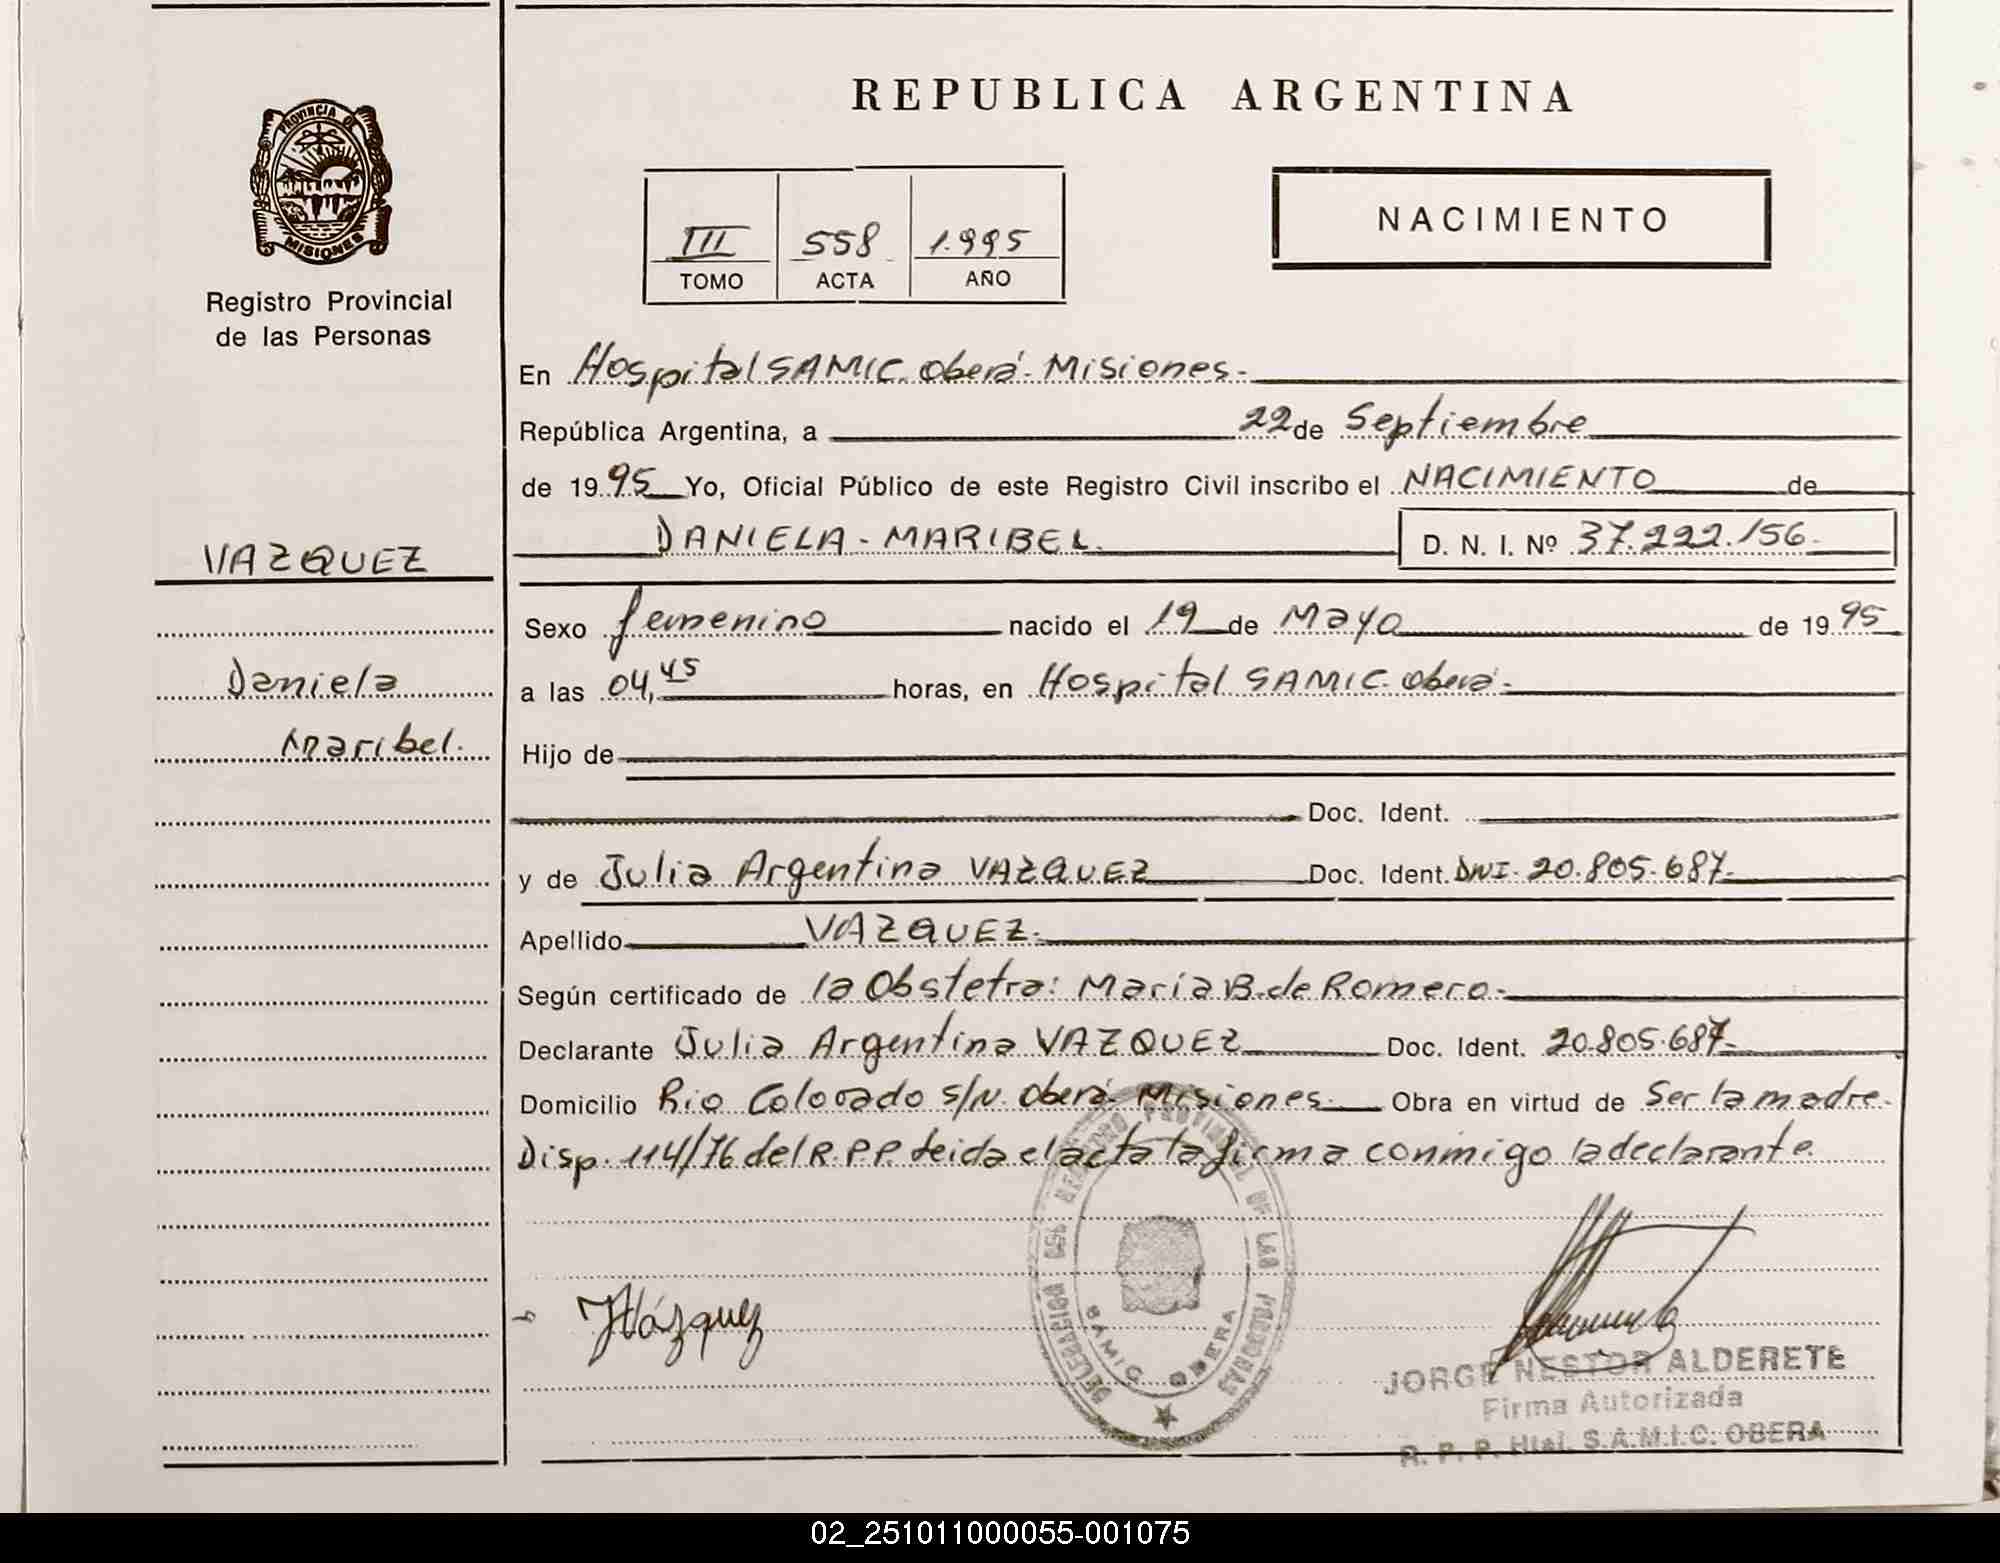 PROVINCIA DE
MISIONES
Registro Provincial
de las Personas
VAZQUEZ
Daniela
Maribel.
REPUBLICA ARGENTINA
III 558 1.995
TOMO ACTA AÑO
NACIMIENTO
En Hospital SAMIC. Oberá- Misiones-
República Argentina, a 22 de Septiembre
de 1995 Yo, Oficial Público de este Registro Civil inscribo el NACIMIENTO de
DANIELA - MARIBEL. D. N. I. Nº 37.222.156-
Sexo femenino nacido el 19 de Mayo de 1995
a las 04,45 horas, en Hospital SAMIC. Oberá-
Hijo de
Doc. Ident.
y de Julia Argentina VAZQUEZ Doc. Ident. DNI- 20.805.687-
Apellido VAZQUEZ.
Según certificado de la Obstetra: María B. de Romero-
Declarante Julia Argentina VAZQUEZ Doc. Ident. 20.805.687-
Domicilio Rio Colorado s/n. Oberá- Misiones Obra en virtud de Ser la madre-
Disp. 114/76 del R.P.P. leida el acta la firma conmigo la declarante.
DELEGACION DEL REGISTRO PROVINCIAL DE LAS PERSONAS
SAMIC OBERA
JVázquez
JORGE NESTOR ALDERETE
Firma Autorizada
R. P. P. Htal. S.A.M.I.C. OBERA
02_251011000055-001075